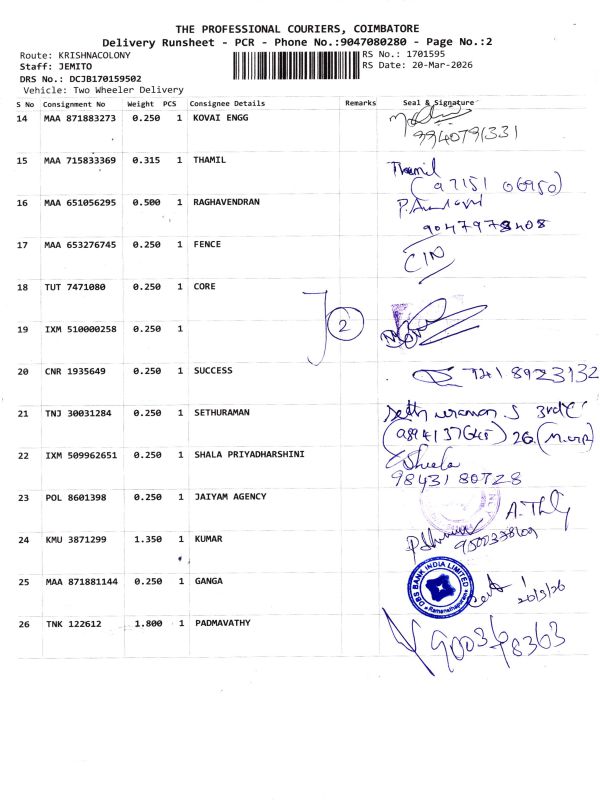 THE PROFESSIONAL COURIERS, COIMBATORE
Delivery Runsheet - PCR - Phone No.:9047080280 - Page No.:2
Route: KRISHNACOLONY RS No.: 1701595
Staff: JEMITO RS Date: 20-Mar-2026
DRS No.: DCJB170159502
Vehicle: Two Wheeler Delivery
S No Consignment No Weight PCS Consignee Details Remarks Seal & Signature
14 MAA 871883273 0.250 1 KOVAI ENGG
9940791331
15 MAA 715833369 0.315 1 THAMIL Thamil
(97151 06950)
16 MAA 651056295 0.500 1 RAGHAVENDRAN
9047978408
17 MAA 653276745 0.250 1 FENCE
18 TUT 7471080 0.250 1 CORE
2
19 IXM 510000258 0.250 1
20 CNR 1935649 0.250 1 SUCCESS 9418923132
21 TNJ 30031284 0.250 1 SETHURAMAN Sethuraman.S
22 IXM 509962651 0.250 1 SHALA PRIYADHARSHINI Sheela
9843180728
23 POL 8601398 0.250 1 JAIYAM AGENCY
24 KMU 3871299 1.350 1 KUMAR
25 MAA 871881144 0.250 1 GANGA DBS BANK INDIA LIMITED
20/3/26
26 TNK 122612 1.800 1 PADMAVATHY